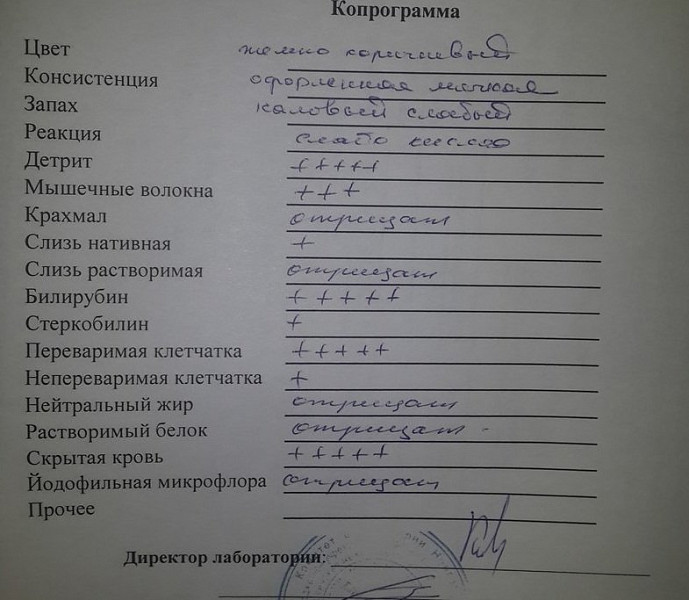 Копрограмма
Цвет темно коричневый
Консистенция оформленная мягкая
Запах каловый слабый
Реакция слабо кислая
Детрит +++++
Мышечные волокна +++
Крахмал отрицат
Слизь нативная +
Слизь растворимая отрицат
Билирубин +++++
Стеркобилин +
Переваримая клетчатка +++++
Непереваримая клетчатка +
Нейтральный жир отрицат
Растворимый белок отрицат -
Скрытая кровь +++++
Йодофильная микрофлора отрицат
Прочее
Директор лаборатории: